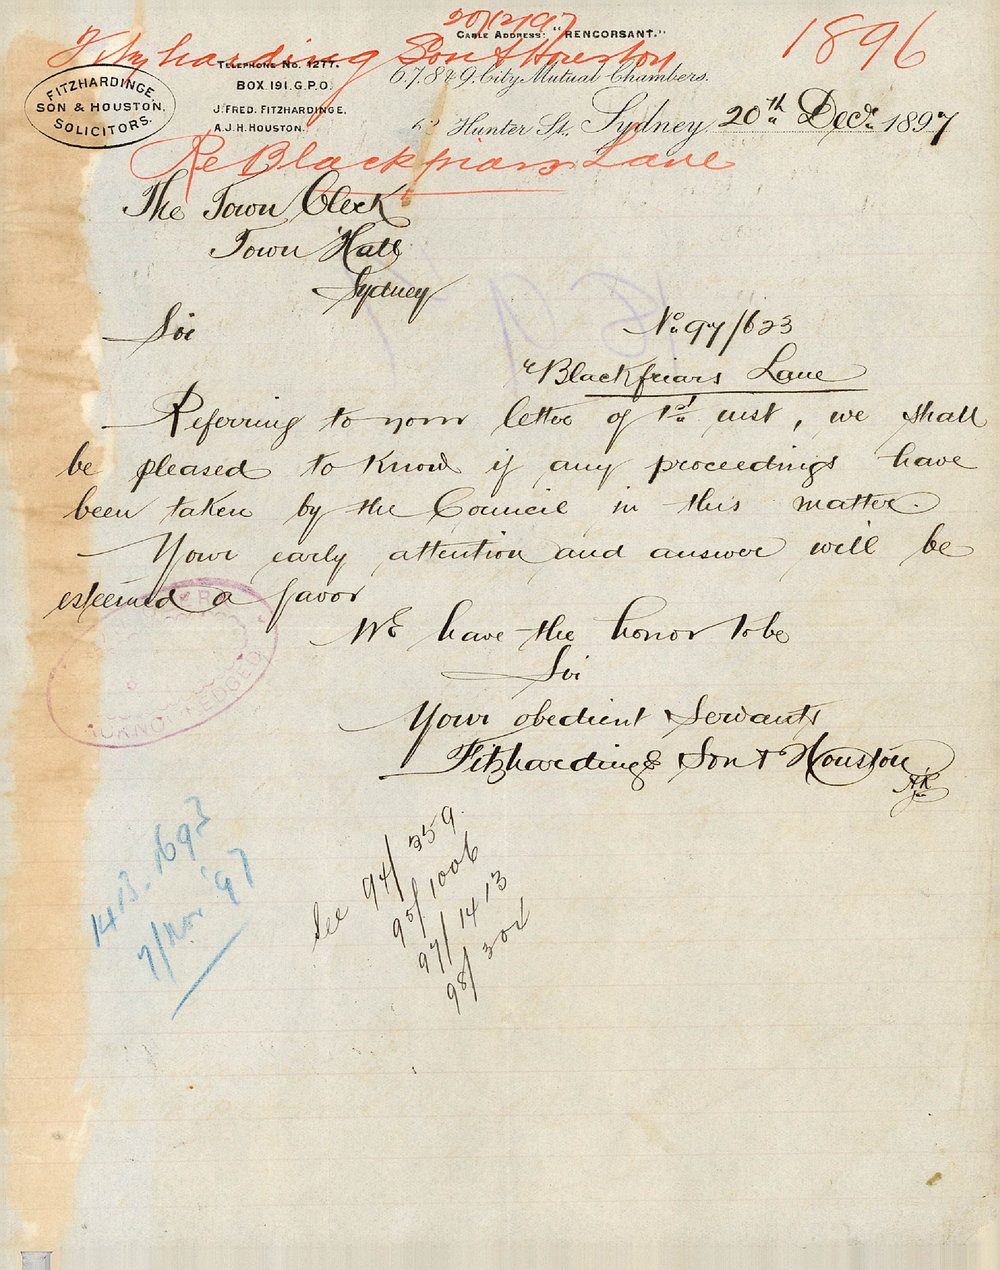 20/12/97
Fitzharding Son & Houston
1896
CABLE ADDRESS: "RENCORSANT."
TELEPHONE NO. 1277.
6,7,8 & 9, City Mutual Chambers.
BOX 191. G.P.O.
FITZHARDINGE,
SON & HOUSTON,
SOLICITORS.
J. FRED. FITZHARDINGE.
A.J.H. HOUSTON.
Hunter St, Sydney, 20th Decr. 1897
Re Blackfriars Lane
The Town Clerk
Town Hall
Sydney
Sir
No. 97/623
"Blackfriars Lane
Referring to your letter of 1st inst, we shall
be pleased to know if any proceedings have
been taken by the Council in this matter.
Your early attention and answer will be
esteemed a favor
We have the honor to be
Sir
Your obedient Servants
Fitzhardinge Son & Houston
ACKNOWLEDGED
1413. 1693
9/Nov '97
See 94/359.
95/1006
97/1413
98/302